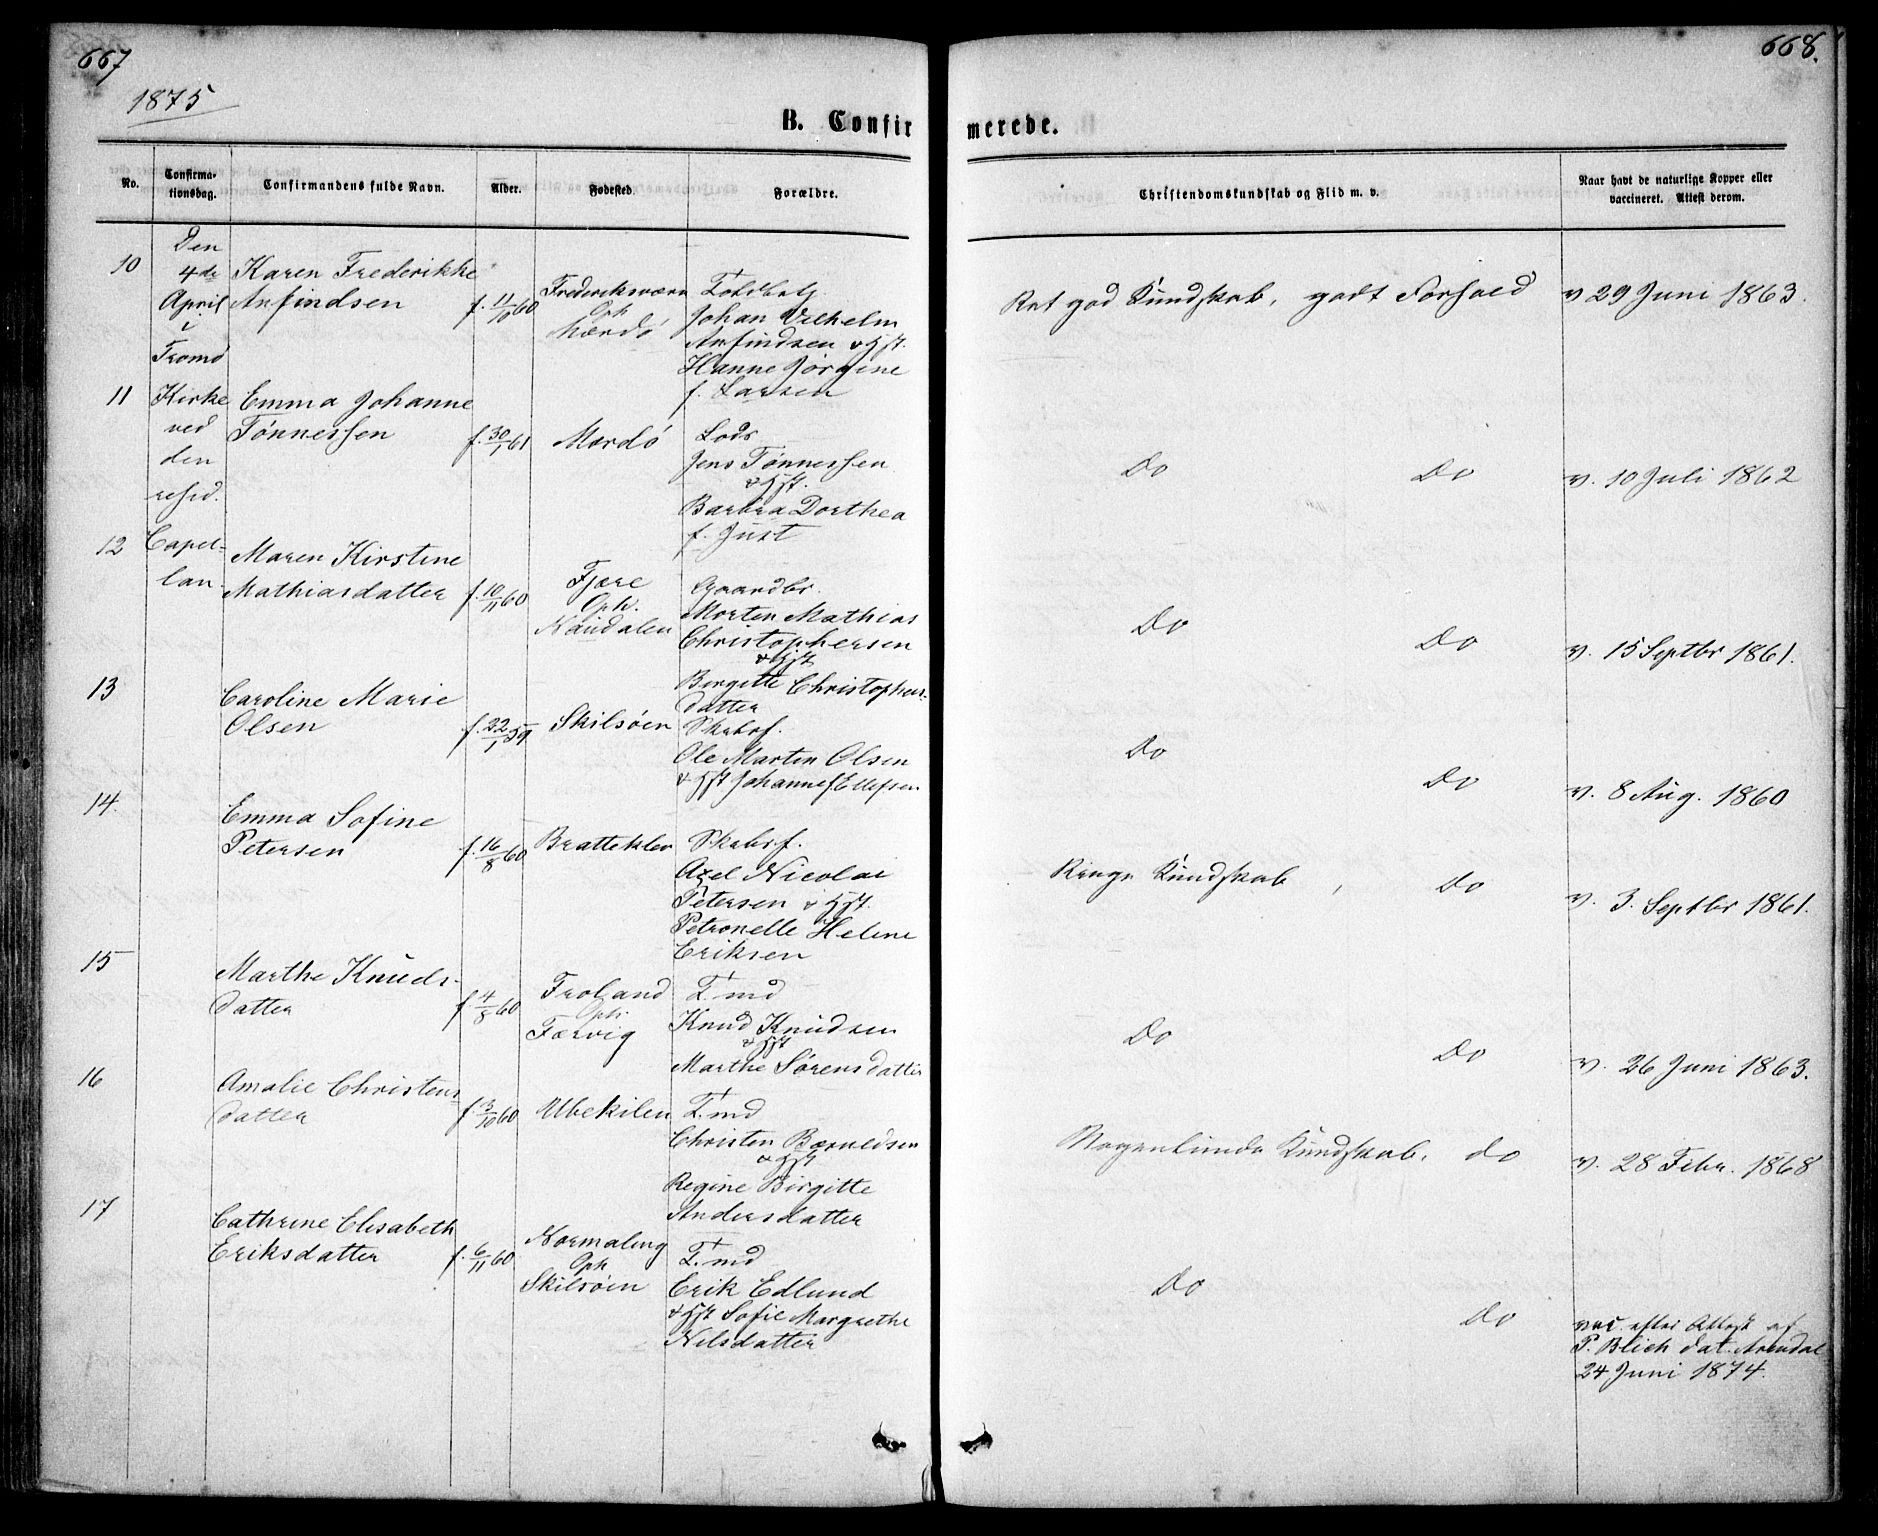 667
668.
1875
B. Confirmerede.
No.
Confirma-
tionsdag.
Confirmandens fulde Navn.
Alder.
Fødested.
Forældre.
Christendomskundskab og Flid m. v.
Naar havt de naturlige Kopper eller
vaccineret. Attest derom.
Den
4de
April
i
Tromø
Kirke
ved
den
resid.
Capel-
lan.
10
Karen Frederikke
Anfindsen
f. 11/10 60
Frederiksværn
Oph
Mærdø
Toldbetj.
Johan Vilhelm
Anfindsen & Hst.
Hanne Jørgine
f. Larsen
god Kundskab, godt Forhold
v 29 Juni 1863.
11
Emma Johanne
Tønnessen
f. 30/1 61
Mærdø
Lods
Jens Tønnessen
& Hst.
Barbra Dorthea
f. Just
Do
Do
v. 10 Juli 1862
12
Maren Kirstine
Mathiasdatter
f. 10/11 60
Fjære
Oph.
Naudalen
Gaardbr.
Morten Mathias
Christophersen
& Hst
Birgitte Christophers-
datter
Do
Do
v. 15 Septbr 1861.
13
Caroline Marie
Olsen
f. 22/1 59
Skilsøen
Skibsf.
Ole Martin Olsen
& Hst Johanne f Ellefsen
Do
Do
v. 8 Aug. 1860
14.
Emma Sofine
Petersen
f. 16/8 60
Bratteklev
Skibsf.
Axel Nicolai
Petersen & Hst.
Petronelle Helene
Eriksen
Ringe Kundskab, Do
v. 3. Septbr 1861.
15
Marthe Knuds-
datter
f 4/8 60
Froland
Oph.
Færvig
T. md
Knud Knudsen
& Hst
Marthe Sørensdatter
Do
Do
v. 26 Juni 1863.
16
Amalie Christens-
datter
f. 3/10 60
Ubekilen
T. md
Christen Bærnldsen
& Hst
Regine Birgitte
Andersdatter
Nogenlunde Kundskab. do
v. 28 Febr. 1868
17
Cathrine Elisabeth
Eriksdatter
f. 6/11 60
Normaling
Oph
Skilsøen
T. md
Erik Edlund
& Hst Sofie Margrethe
Nilsdatter
Do
Do
vac. efter Attest af
P. Blich dat. Arendal
24 Juni 1874.